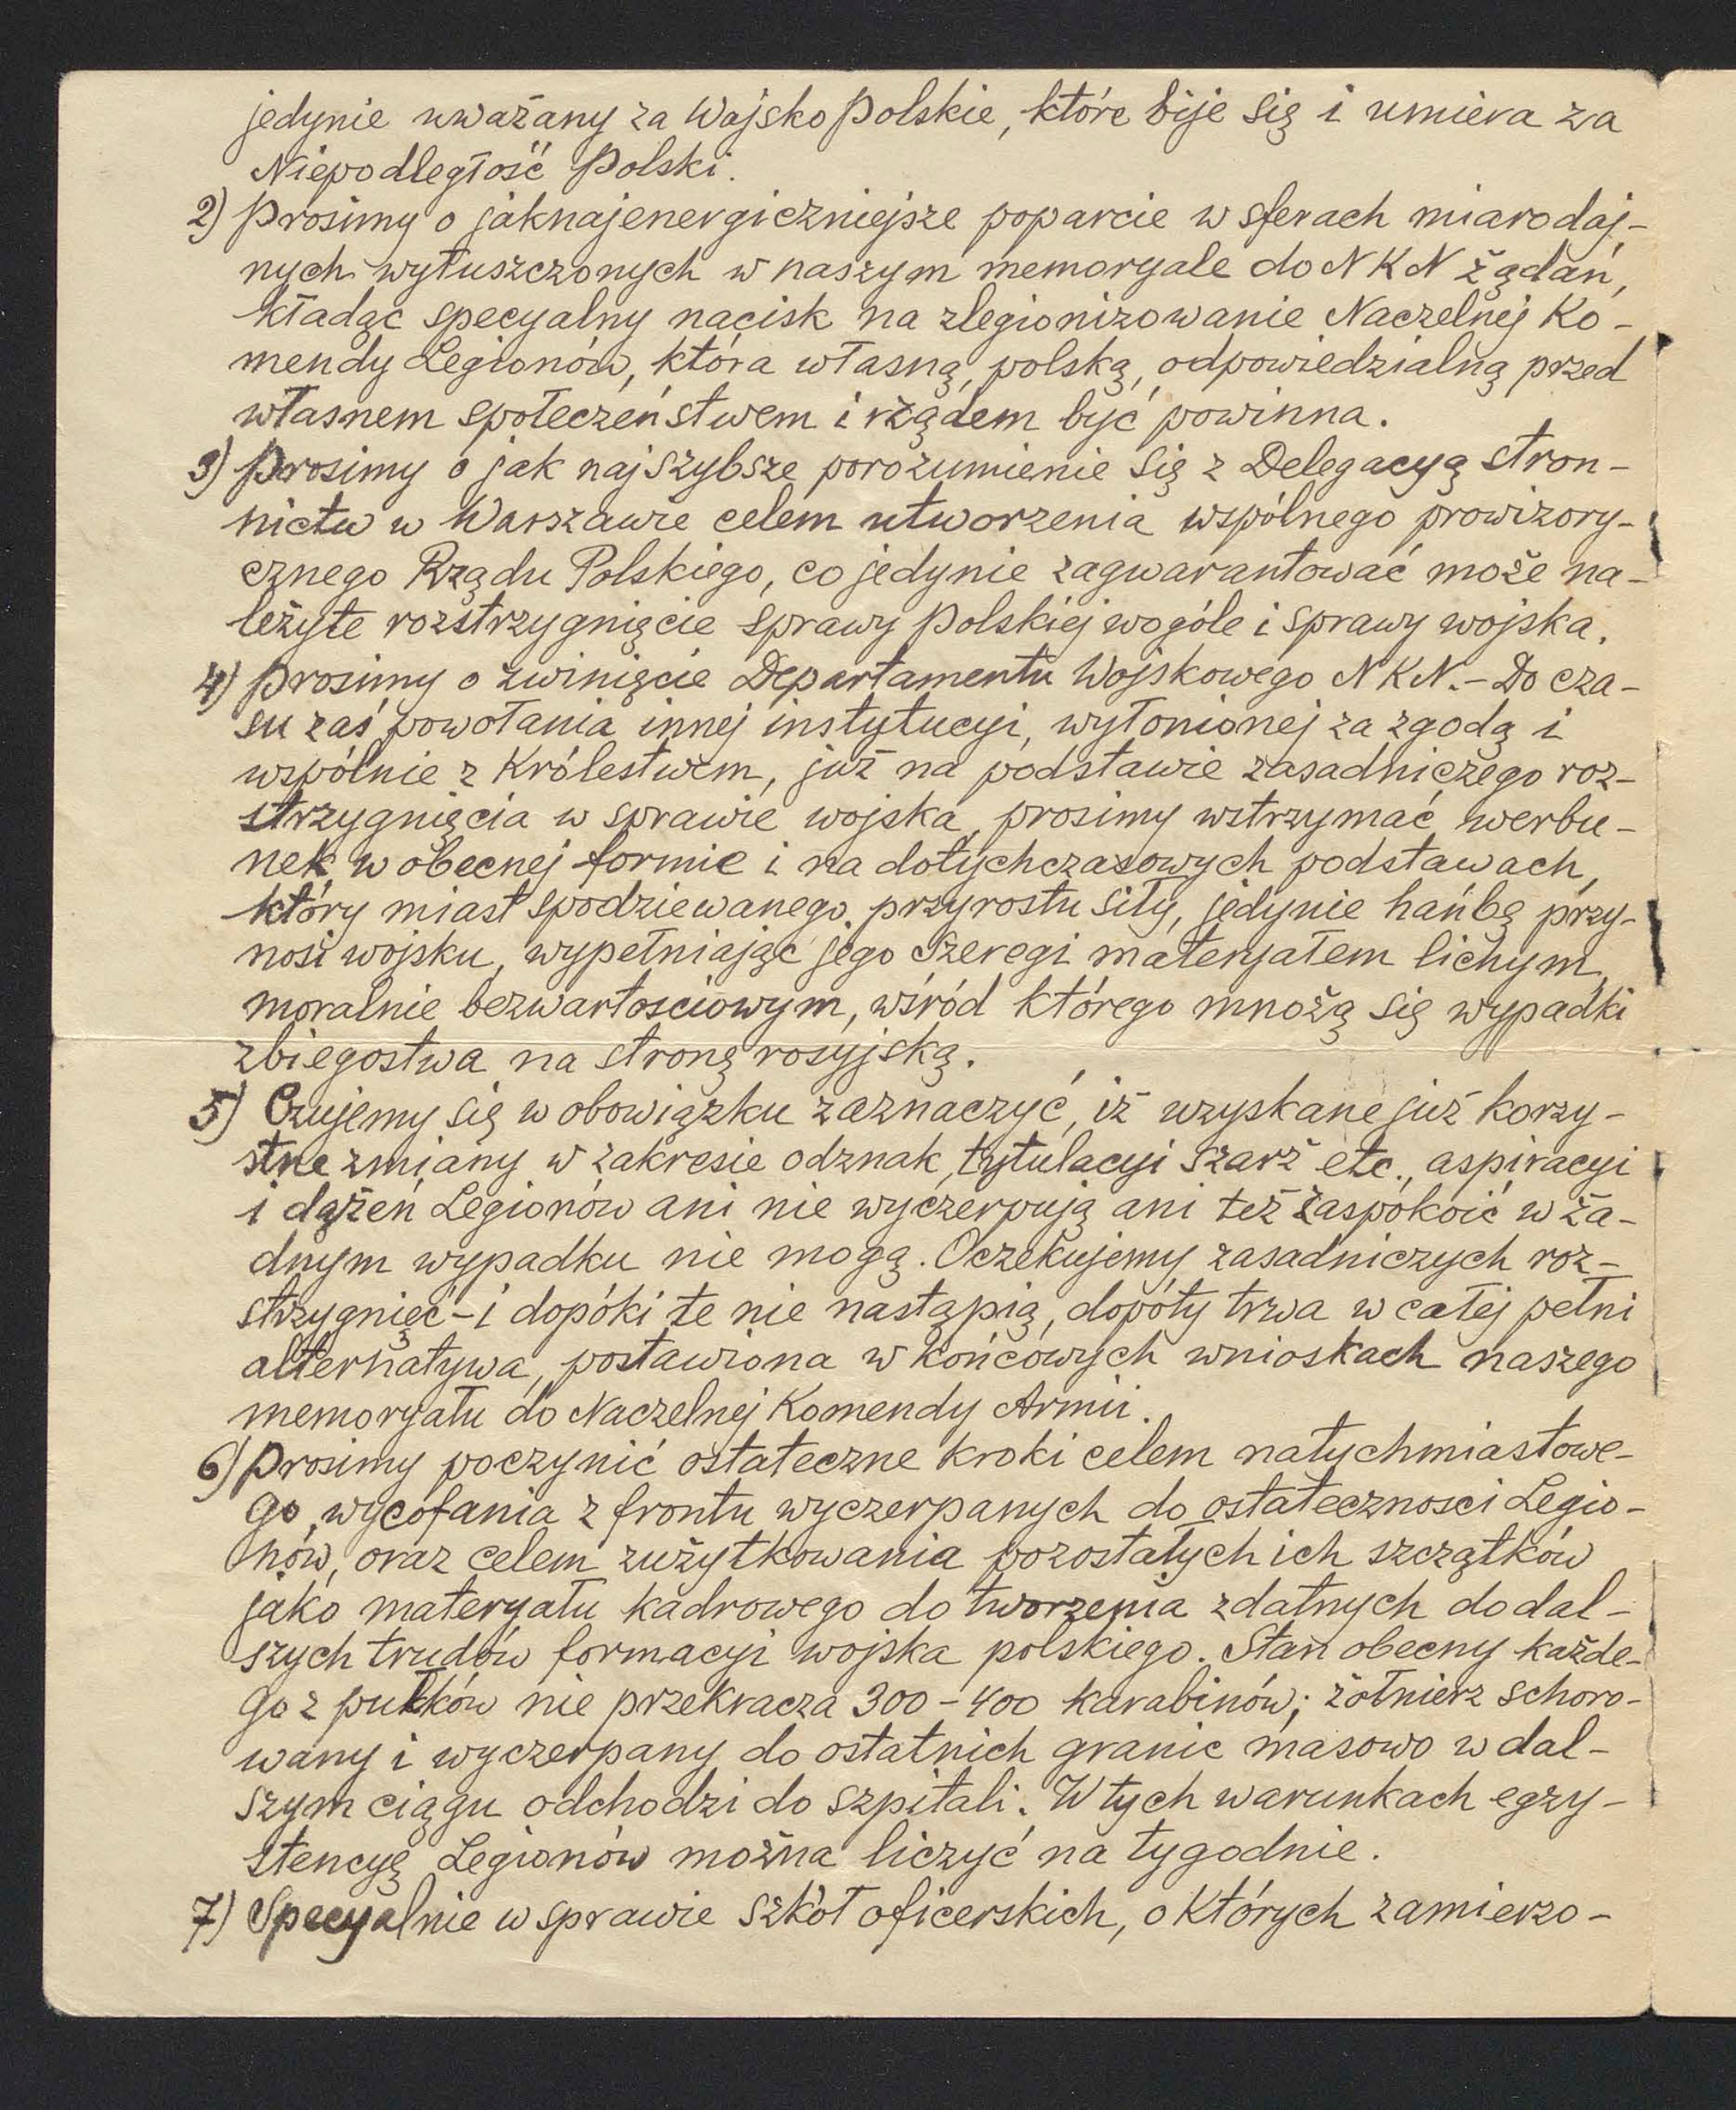 jedynie uważany za Wojsko Polskie, które bije się i umiera za
Niepodległość Polski.
2) Prosimy o jaknajenergiczniejsze poparcie w sferach miarodaj-
nych wyłuszczonych w naszym memoryale do NKN żądań,
kładąc specyalny nacisk na zlegionizowanie Naczelnej Ko-
mendy Legionów, która własną, polską, odpowiedzialną przed
własnem społeczeństwem i rządem być powinna.
3) Prosimy o jak najszybsze porozumienie się z Delegacyą stron-
nictw w Warszawie celem utworzenia wspólnego prowizory-
cznego Rządu Polskiego, co jedynie zagwarantować może na-
leżyte rozstrzygnięcie sprawy Polskiej wogóle i sprawy wojska.
4) Prosimy o zwinięcie Departamentu Wojskowego NKN.- Do cza-
su zaś powołania innej instytucyi, wyłonionej za zgodą i
wspólnie z Królestwem, już na podstawie zasadniczego roz-
strzygnięcia w sprawie wojska, prosimy wstrzymać werbu-
nek w obecnej formie i na dotychczasowych podstawach,
który miast spodziewanego przyrostu siły, jedynie hańbę przy-
nosi wojsku, wypełniając jego szeregi materyałem lichym,
moralnie bezwartościowym, wśród którego mnożą się wypadki
zbiegostwa na stronę rosyjską.
5) Czujemy się w obowiązku zaznaczyć, iż uzyskane już korzy-
stne zmiany w zakresie odznak, tytulacyi szarż etc., aspiracyi
i dążeń Legionów ani nie wyczerpują ani też zaspokoić w ża-
dnym wypadku nie mogą. Oczekujemy zasadniczych roz-
strzygnięć - i dopóki te nie nastąpią, dopóty trwa w całej pełni
alternatywa, postawiona w końcowych wnioskach naszego
memoryału do Naczelnej Komendy Armii.
6) Prosimy poczynić ostateczne kroki celem natychmiastowe-
go wycofania z frontu wyczerpanych do ostateczności Legio-
nów, oraz celem zużytkowania pozostałych ich szczątków
jako materyału kadrowego do tworzenia zdatnych do dal-
szych trudów formacyi wojska polskiego. Stan obecny każde-
go z pułków nie przekracza 300 - 400 karabinów; żołnierz schoro-
wany i wyczerpany do ostatnich granic masowo w dal-
szym ciągu odchodzi do szpitali. W tych warunkach egzy-
stencyę Legionów można liczyć na tygodnie.
7) Specyalnie w sprawie szkół oficerskich, o których zamierzo-